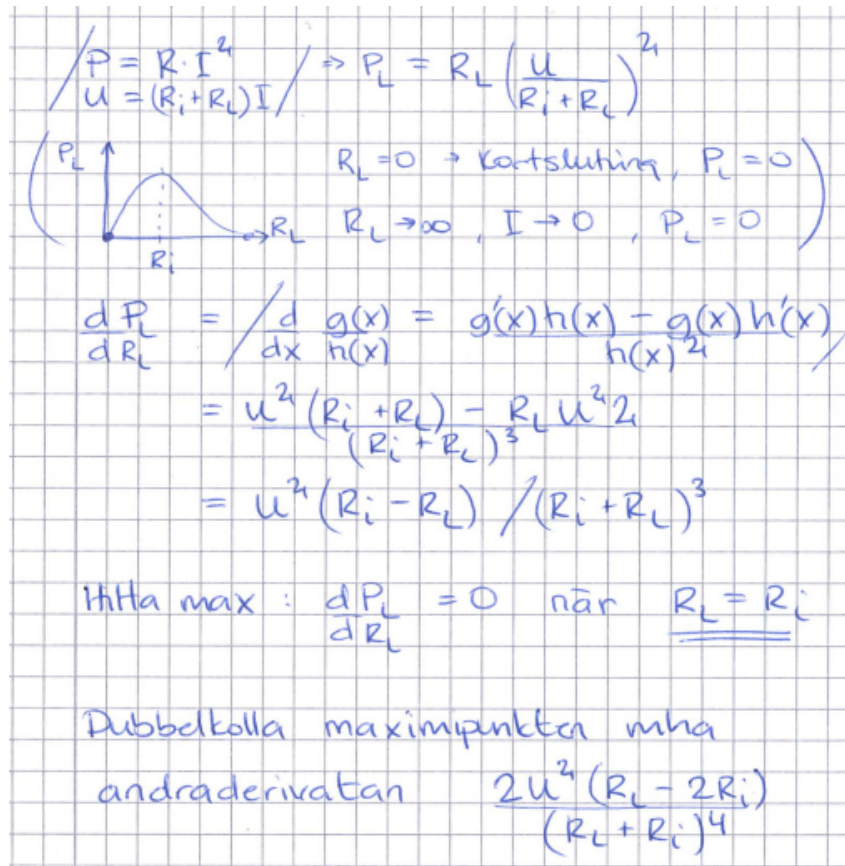 /P = R·I² / ⇒ P_L = R_L (U / (R_i + R_L))²
U = (R_i + R_L) I
P_L R_L = 0 → Kortslutning, P_L = 0
R_L R_L → ∞, I → 0, P_L = 0
R_i
dP_L/dR_L = / d/dx g(x)/h(x) = (g'(x)h(x) - g(x)h'(x)) / h(x)² /
= (U² (R_i + R_L) - R_L U² 2) / (R_i + R_L)³
= U² (R_i - R_L) / (R_i + R_L)³
Hitta max : dP_L/dR_L = 0 när R_L = R_i
Dubbelkolla maximipunkten mha
andraderivatan 2U² (R_L - 2R_i) / (R_L + R_i)⁴